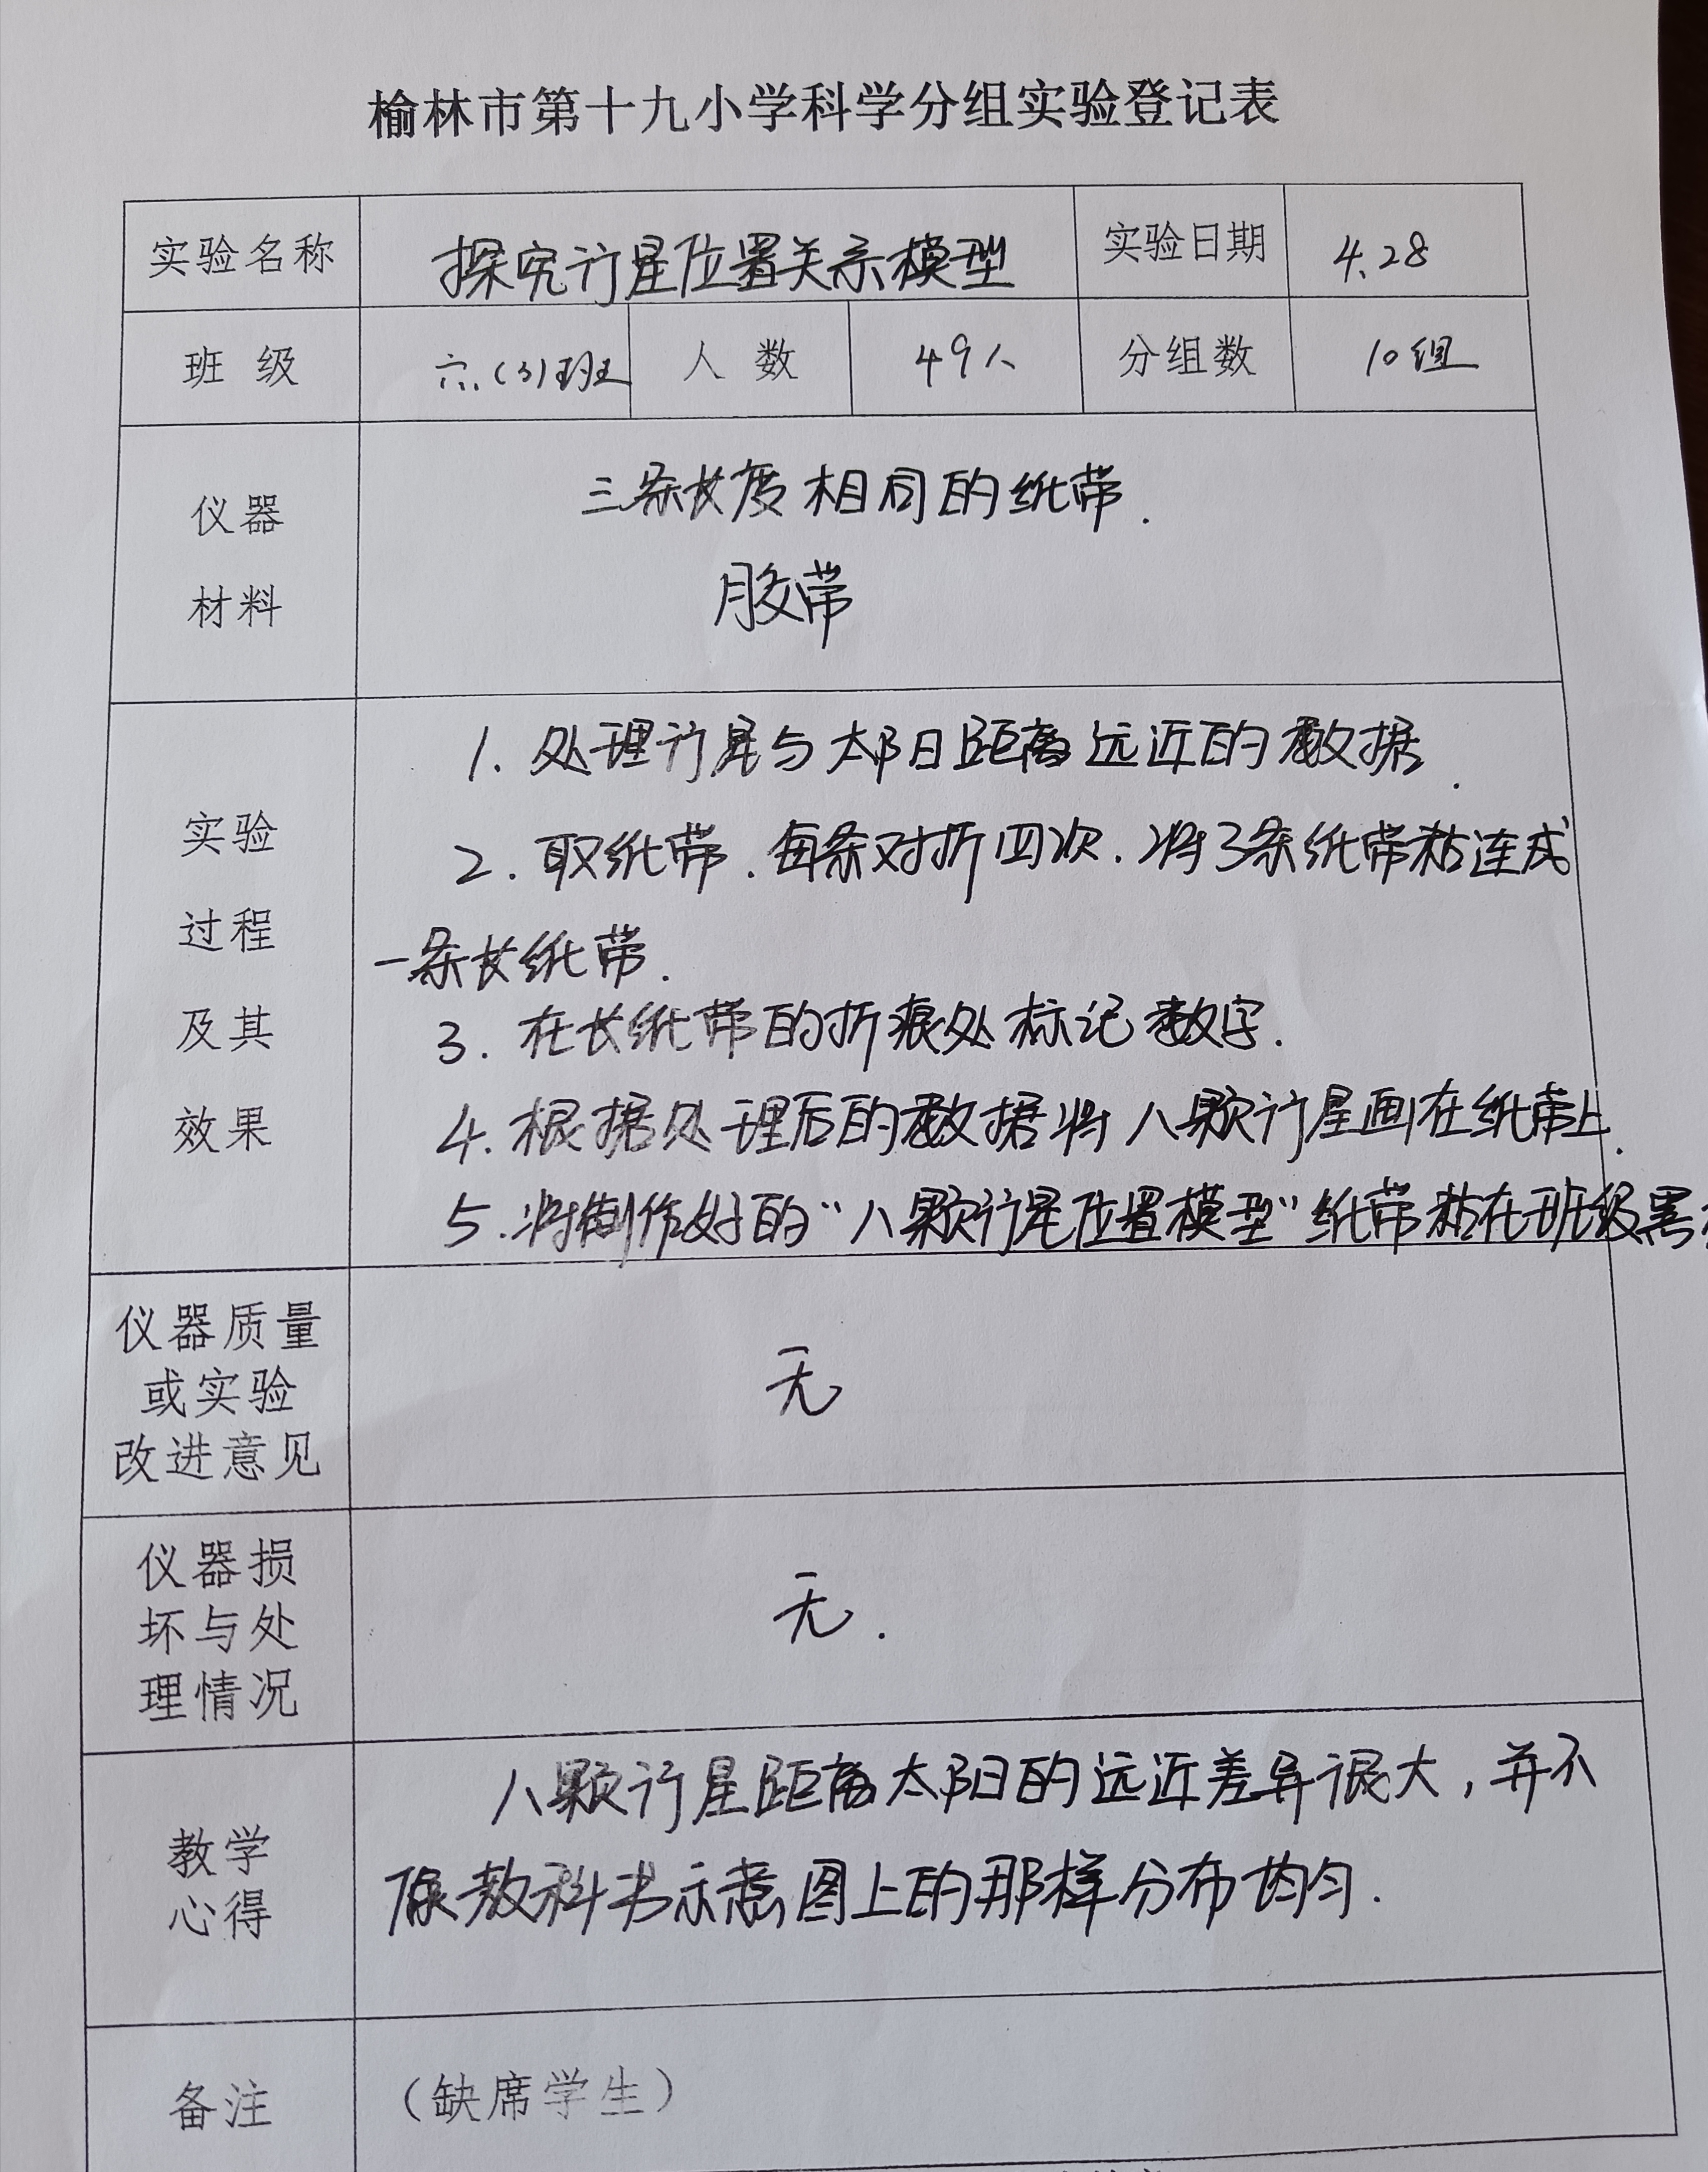 榆林市第十九小学科学分组实验登记表
实验名称 探究行星位置关系模型 实验日期 4.28
班 级 六.(3)班 人 数 49人 分组数 10组
仪器
材料
三条长度相同的纸带.
胶带
实验
过程
及其
效果
1. 处理行星与太阳距离远近的数据.
2. 取纸带.每条对折四次.将3条纸带粘连成
一条长纸带.
3. 在长纸带的折痕处标记数字.
4. 根据处理后的数据将八颗行星画在纸带上.
5. 将制作好的“八颗行星位置模型”纸带粘在班级黑
仪器质量
或实验
改进意见
无
仪器损
坏与处
理情况
无.
教学
心得
八颗行星距离太阳的远近差异很大,并不
像教科书示意图上的那样分布均匀.
备注 (缺席学生)